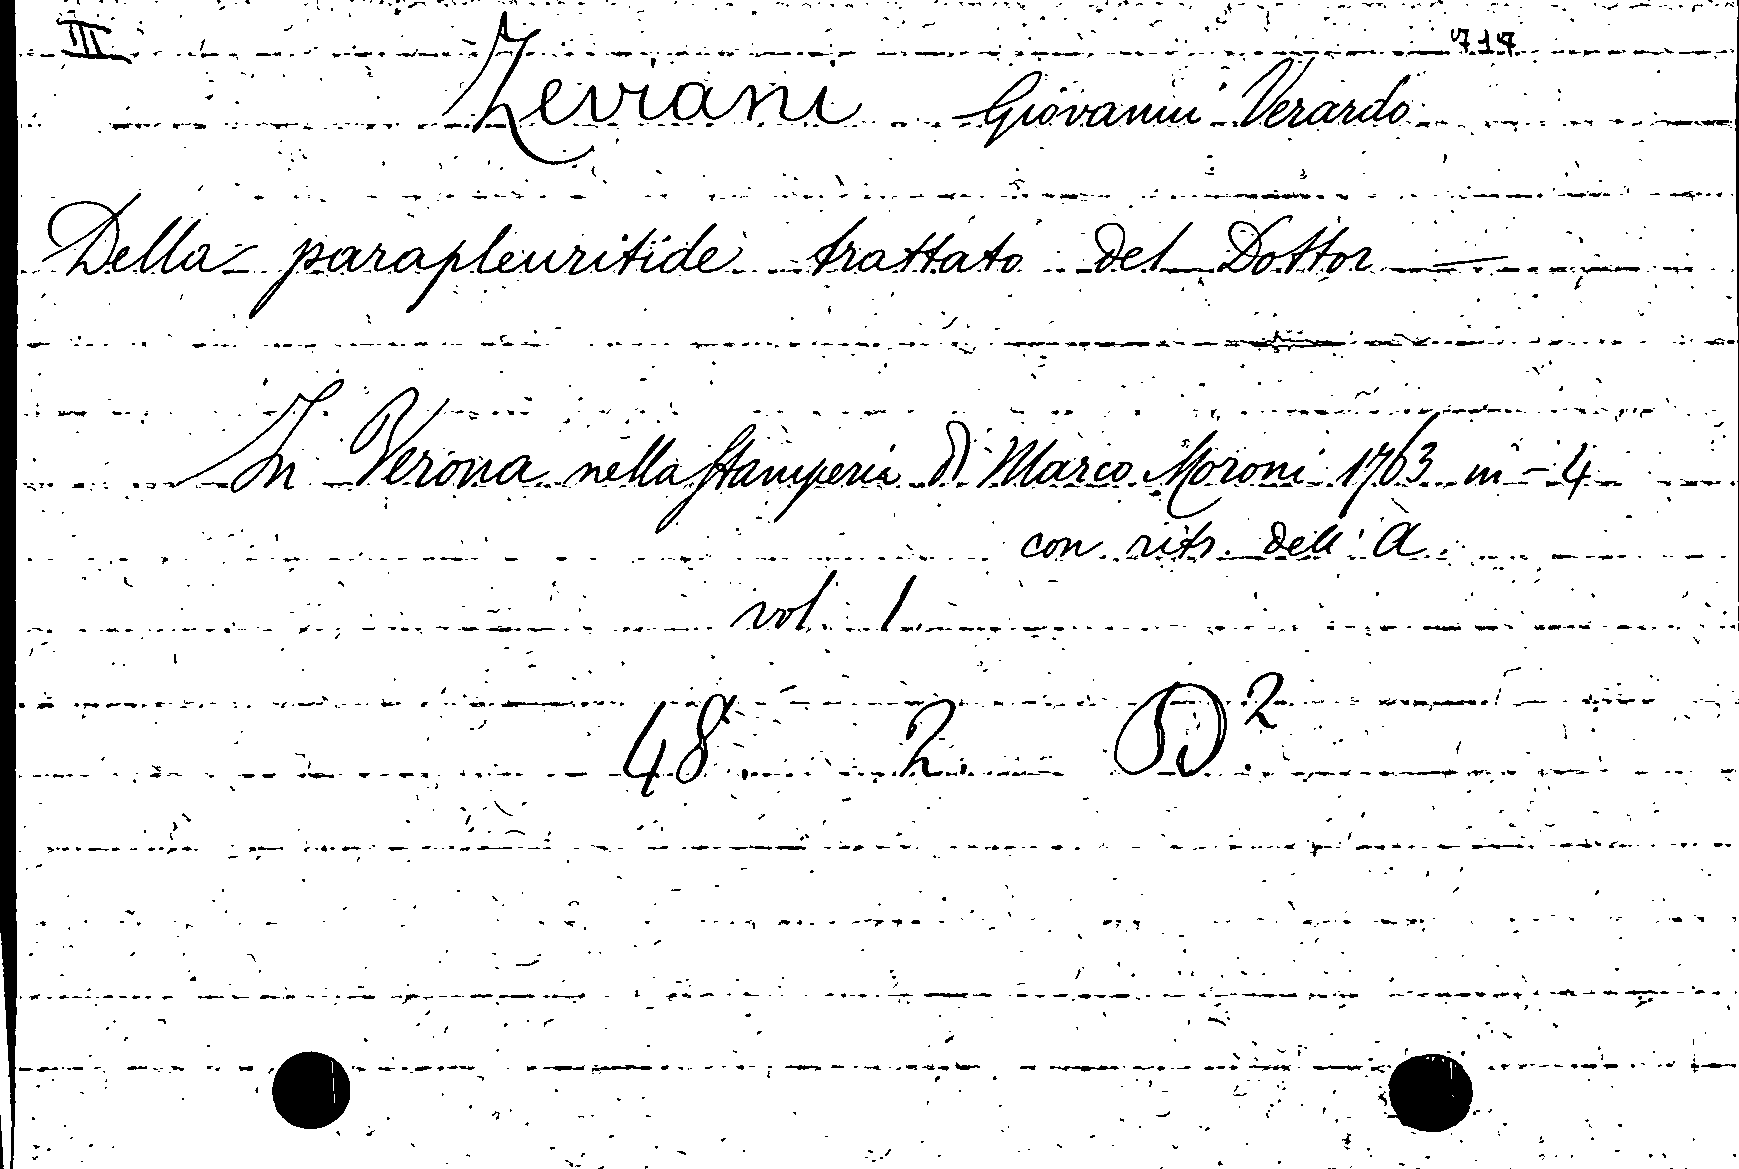 III 717
Zeviani Giovanni Verardo
Della parapleuritide trattato del Dottor —
In Verona nella Stamperia di Marco Moroni 1763 in-4
con ritr. dell'A.
vol. 1
48 2 D²